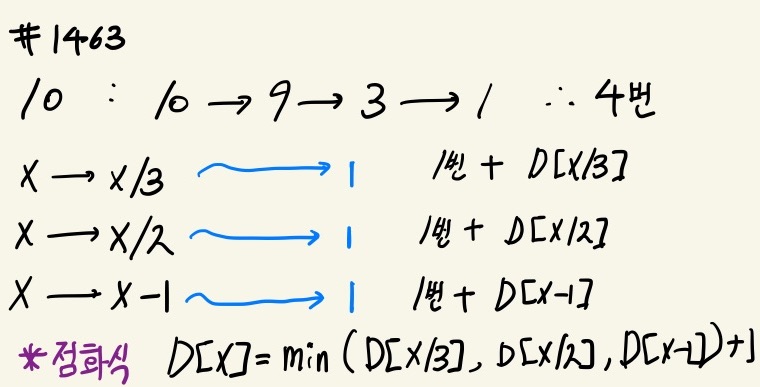 # 1463
10 : 10 → 9 → 3 → 1 ∴ 4번
X → X/3 → 1 1번 + D[X/3]
X → X/2 → 1 1번 + D[X/2]
X → X-1 → 1 1번 + D[X-1]
*점화식 D[X] = min (D[X/3], D[X/2], D[X-1])+1